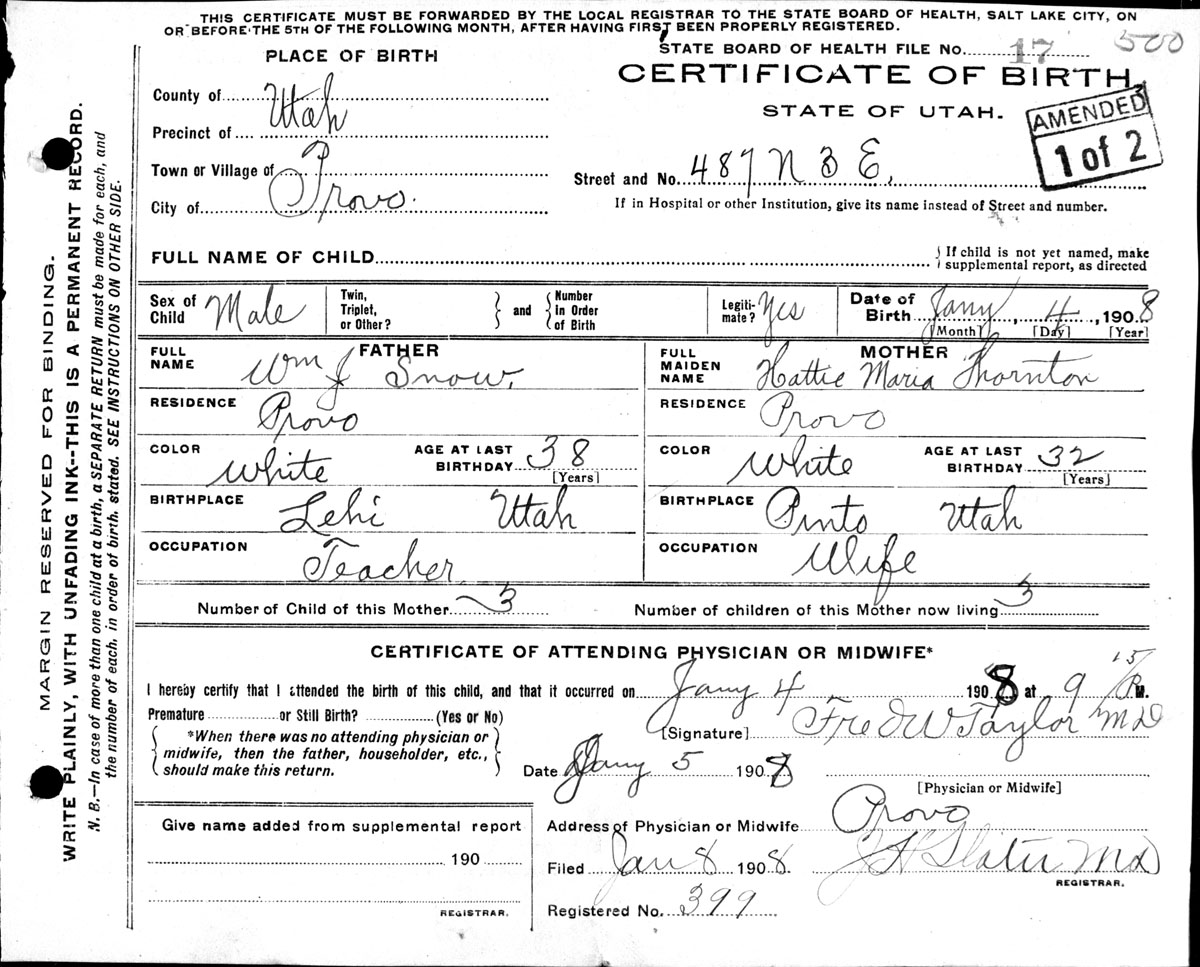 THIS CERTIFICATE MUST BE FORWARDED BY THE LOCAL REGISTRAR TO THE STATE BOARD OF HEALTH, SALT LAKE CITY, ON
OR BEFORE THE 5TH OF THE FOLLOWING MONTH, AFTER HAVING FIRST BEEN PROPERLY REGISTERED.
PLACE OF BIRTH
STATE BOARD OF HEALTH FILE No. 17 500
CERTIFICATE OF BIRTH.
STATE OF UTAH.
AMENDED
1 of 2
County of Utah
Precinct of
Town or Village of Provo.
City of
Street and No. 487 N 3 E.
If in Hospital or other Institution, give its name instead of Street and number.
FULL NAME OF CHILD
{ If child is not yet named, make
supplemental report, as directed
Sex of Child Male
Twin, Triplet, or Other? } and { Number in Order of Birth
Legiti-mate? Yes
Date of Birth Jany 4, 1908
[Month] [Day] [Year]
FATHER
FULL NAME Wm J Snow.
MOTHER
FULL MAIDEN NAME Hattie Maria Thornton
RESIDENCE Provo
RESIDENCE Provo
COLOR White AGE AT LAST BIRTHDAY 38 [Years]
COLOR White AGE AT LAST BIRTHDAY 32 [Years]
BIRTHPLACE Lehi Utah
BIRTHPLACE Pinto Utah
OCCUPATION Teacher
OCCUPATION Wife
Number of Child of this Mother 3
Number of children of this Mother now living 3
CERTIFICATE OF ATTENDING PHYSICIAN OR MIDWIFE*
I hereby certify that I attended the birth of this child, and that it occurred on Jany 4 1908 at 9 15/ P M.
Premature or Still Birth? (Yes or No)
[Signature] Fred W Taylor MD
{ *When there was no attending physician or
midwife, then the father, householder, etc.,
should make this return. }
Date Jany 5 1908
[Physician or Midwife]
Give name added from supplemental report
190
REGISTRAR.
Address of Physician or Midwife Provo
Filed Jan 8 1908. J H Slater MD
REGISTRAR.
Registered No. 399
MARGIN RESERVED FOR BINDING.
WRITE PLAINLY, WITH UNFADING INK--THIS IS A PERMANENT RECORD.
N. B.—In case of more than one child at a birth, a SEPARATE RETURN must be made for each, and
the number of each, in order of birth, stated. SEE INSTRUCTIONS ON OTHER SIDE.